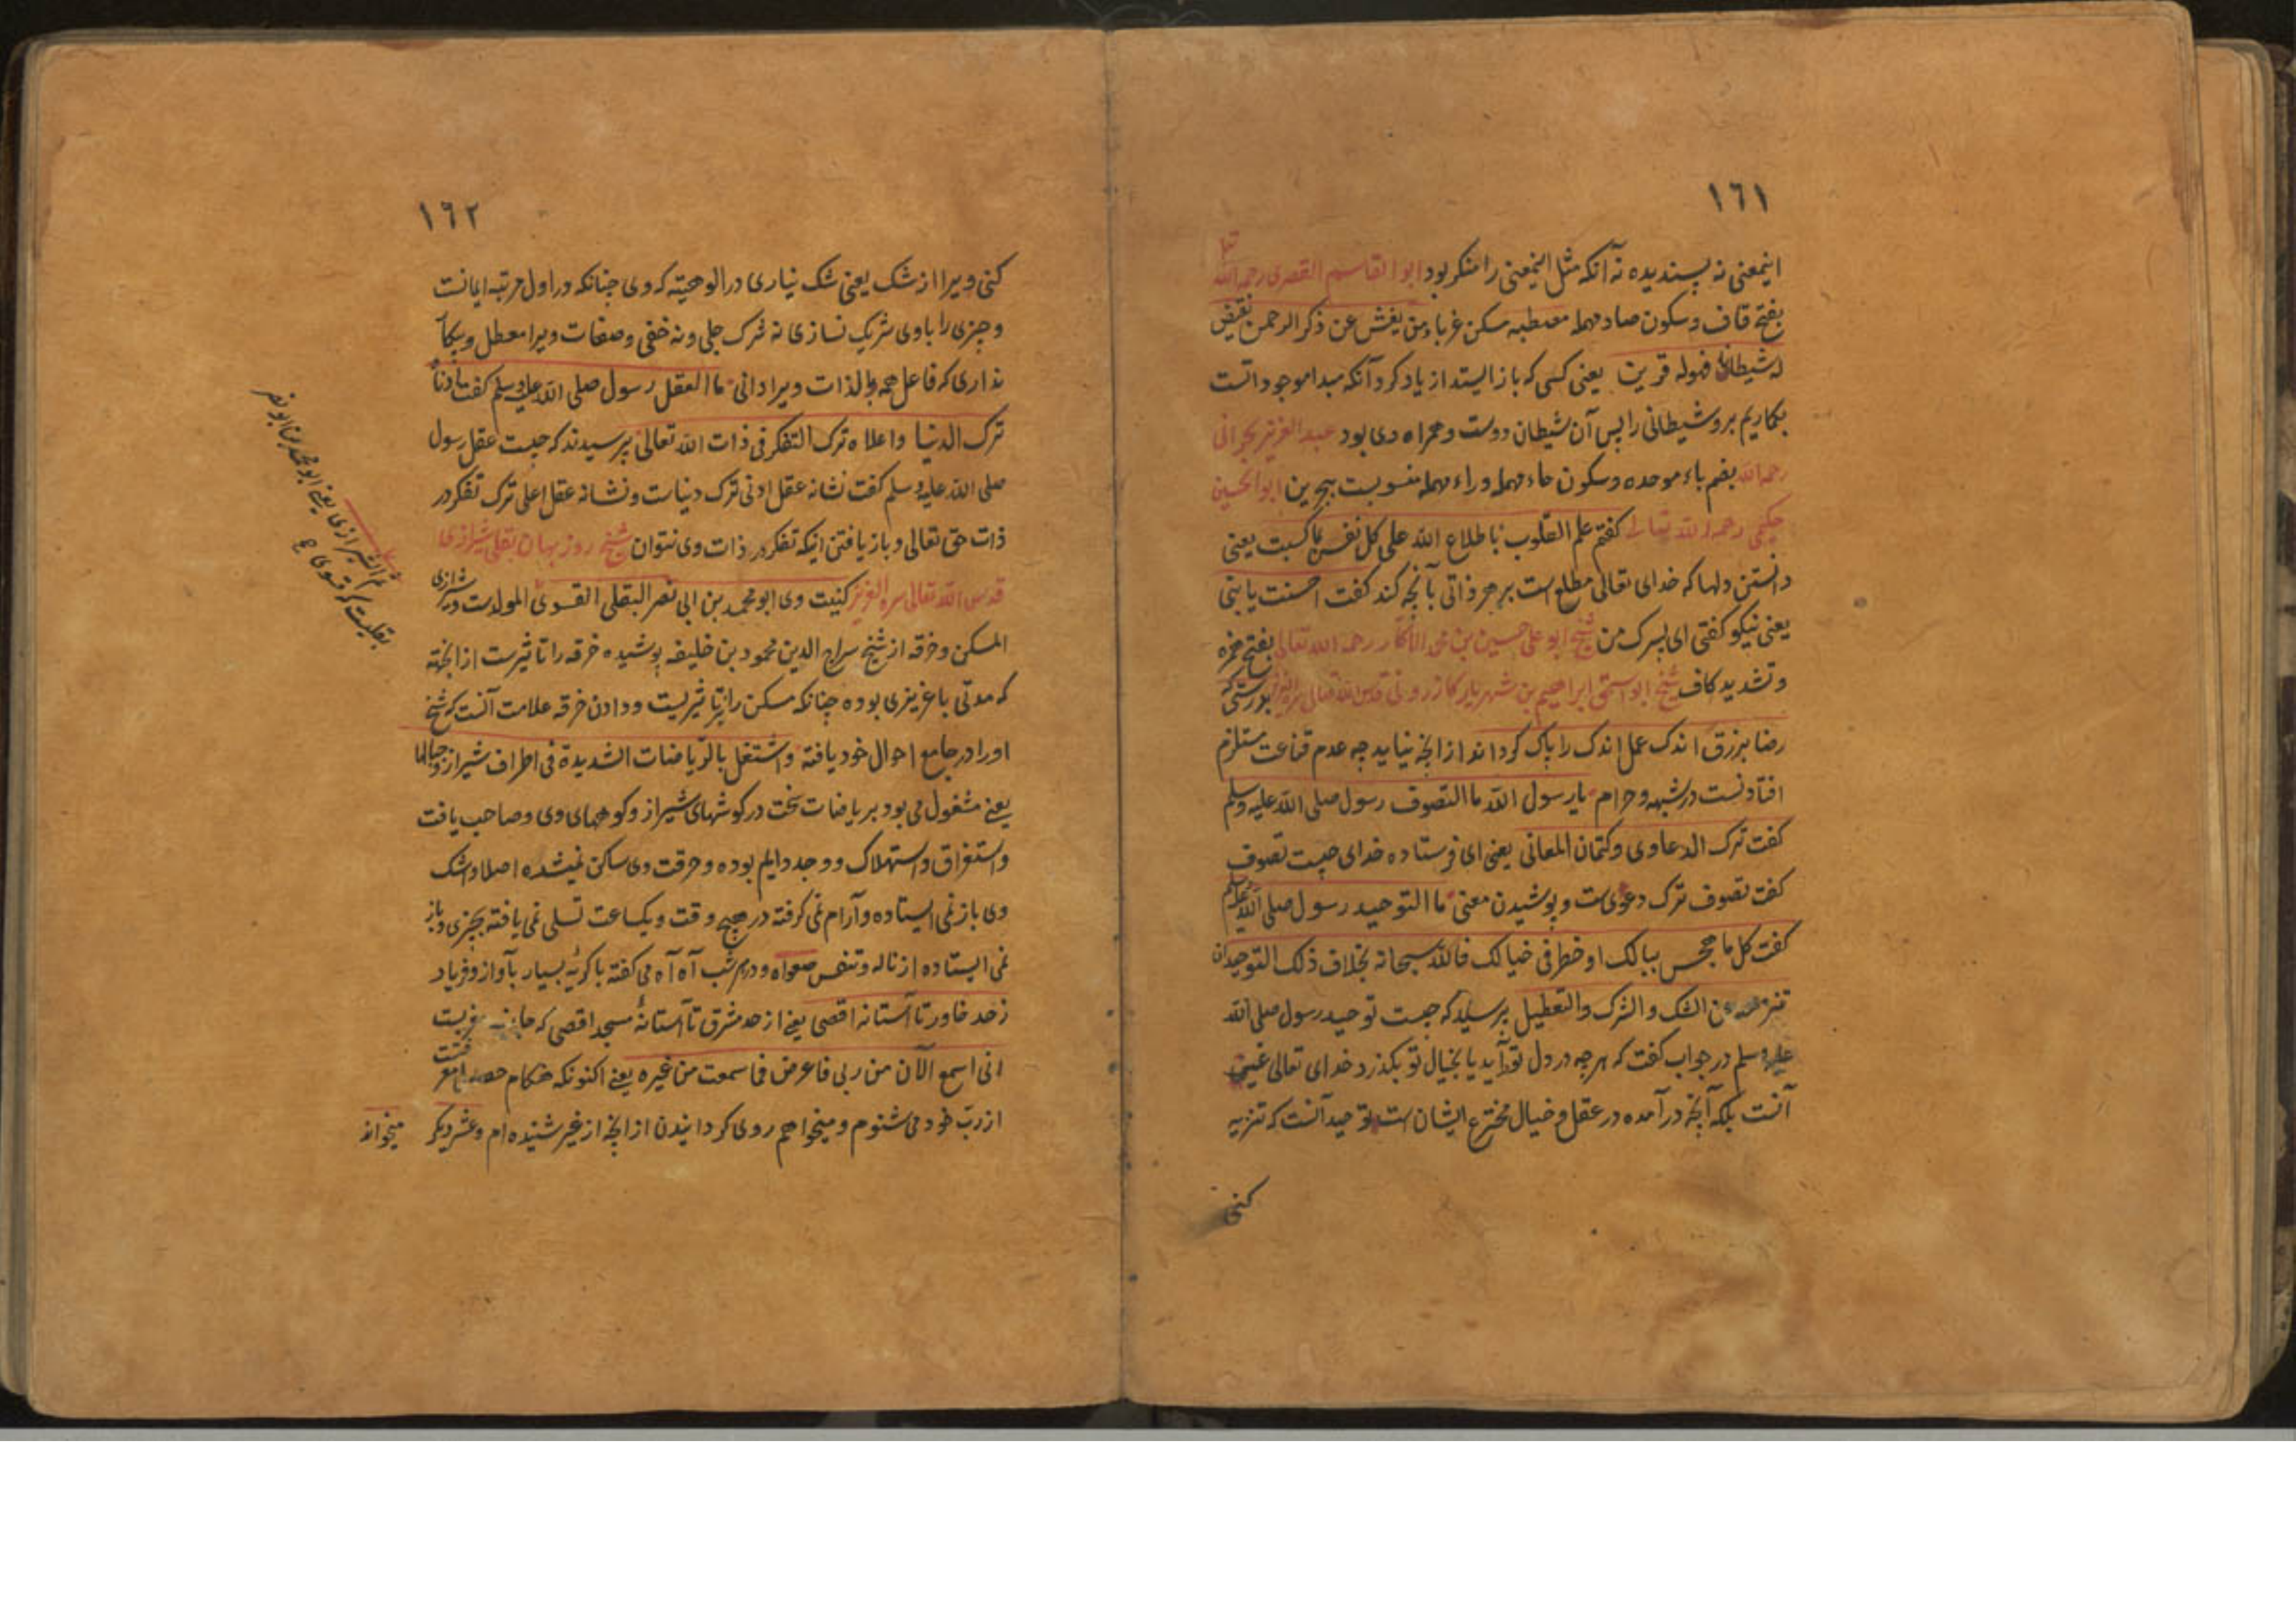 ١٦١
اینمعنی نه پسندیده نه آنکه مثل اینمعنی را منکر بود ابوالقاسم القصری رحمه الله تعا
بفتح قاف وسکون صاد مهمله مصطبه مسکن غرباء ومن یعش عن ذکر الرحمن نقیض
له شیطانا فهو له قرین یعنی کسی که باز ایستد از یاد کرد آنکه مبدا موجوداتست
بکماریم برو شیطانی را پس آن شیطان دوست وهمراه وی بود عبدالعزیز بحرانی
رحمه الله بضم باء موحده وسکون حاء مهمله وراء مهمله منسوبست ببحرین ابوالحسین
حکیمی رحمه الله تعالی کفتم علم القلوب باطلاع الله علی کل نفس بما کسبت یعنی
دانستن دلها که خدای تعالی مطلع است بر هر ذاتی بآنچه کند کفت احسنت یا بنی
یعنی نیکو کفتی ای پسرک من شیخ ابو علی حسین بن محمد الاکار رحمه الله تعالی بفتح همزه
وتشدید کاف شیخ ابو اسحق ابراهیم بن شهریار کازرونی قدس الله تعالی سره العزیز بورستی که
رضا برزق اندک عمل اندک را پاک کرداند از انچه نیاید چه عدم قناعت مستلزم
افتادنست در شبهه وحرام یا رسول الله ما التصوف رسول صلی الله علیه وسلم
کفت ترک الدعاوی وکتمان المعانی یعنی ای فرستاده خدای چیست تصوف
کفت تصوف ترک دعوی‌ست وپوشیدن معنی ما التوحید رسول صلی الله علیه وسلم
کفت کل ما هجس ببالک او خطر فی خیالک فالله سبحانه بخلاف ذلک التوحید ان
تنزهه عن الشک والشرک والتعطیل پرسید که چیست توحید رسول صلی الله
علیه وسلم در جواب کفت که هر چه در دل تو آید یا بخیال تو بکذرد خدای تعالی غیر
آنست بلکه آنچه در آمده در عقل وخیال مخترع ایشان ست توحید آنست که تنزیه
کنی
١٦٢
کنی ویرا از شک یعنی شک نیاری در الوهیته که وی چنانکه در اول مرتبه ایمانست
وچیزی را با وی شریک نسازی نه شرک جلی ونه خفی وصفات ویرا معطل وبیکار
نداری که فاعل همه بالذات ویرا دانی ما العقل رسول صلی الله علیه وسلم کفت ادناه
ترک الدنیا واعلاه ترک التفکر فی ذات الله تعالی پرسیدند که چیست عقل رسول
صلی الله علیه وسلم کفت نشانه عقل ادنی ترک دنیاست ونشانه عقل اعلی ترک تفکر در
ذات حق تعالی وباز یافتن اینکه تفکر در ذات وی نتوان شیخ روزبهان بقلی شیرازی
قدس الله تعالی سره العزیز کنیت وی ابو محمد بن ابی نصر البقلی الفسوی المولدست وشیرازی
المسکن وخرقه از شیخ سراج الدین محمود بن خلیفه پوشیده خرقه را تاثیرست از انجهته
که مدتی با عزیزی بوده چنانکه مسکن را نیز تاثیریست ودادن خرقه علامت آنست که شیخ
اورا در جامع احوال خود یافته واشتغل بالریاضات الشدیدة فی اطراف شیراز وجبالها
یعنی مشغول می بود بریاضات سخت در کوشهای شیراز وکوههای وی وصاحب یافت
واستغراق واستهلاک ووجد دایم بوده وحرقت وی ساکن نمیشده اصلا واشک
وی باز نمی ایستاده وآرام نمی کرفته در هیچ وقت ویکساعت تسلی نمی یافته بچیزی وباز
نمی ایستاده از ناله وتنفس صعداء ودر هر شب آه آه می کفته با کریه بسیار بآواز وفریاد
زحد خاور تا آستانه اقصی یعنی از حد مشرق تا آستانه مسجد اقصی که جانب مغربست
انی اسمع الآن من ربی فاعرض فما سمعت من غیره یعنی اکنونکه هنکام
از رب خود می شنوم ومیخواهم روی کردانیدن از انچه از غیر شنیده ام وعشر دیکر میخواند
ثم الشیرازی یعنی ابو محمد بن ابو نصر
بقلیست که فسوی